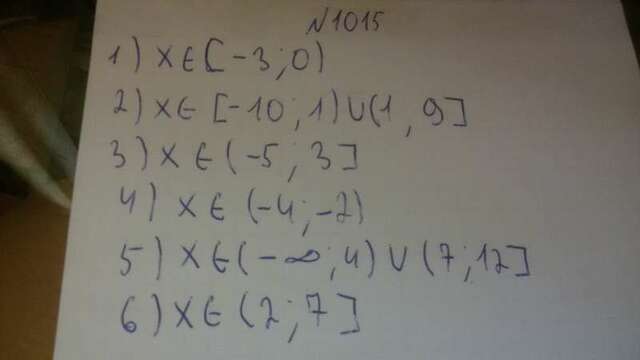 N1015
1) x∈[-3;0)
2) x∈[-10;1)∪(1,9]
3) x∈(-5;3]
4) x∈(-4;-2)
5) x∈(-∞;4)∪(7;12]
6) x∈(2;7]